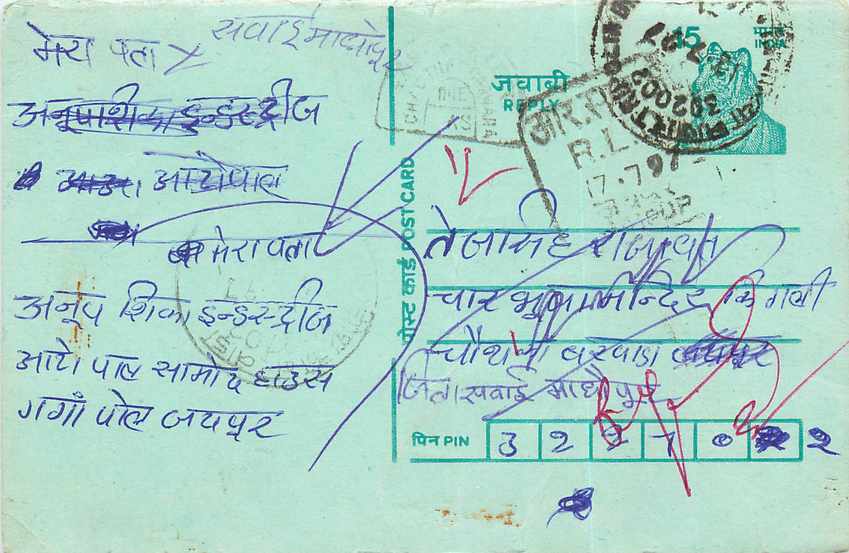 मेरा पता
सवाई माधोपुर
अनूपाशिका इन्डस्ट्रीज
आटोपाल
मेरा पता
अनूप शिका इन्डस्ट्रीज
आटो पाल सामोद हाउस
गगाँ पोल जयपुर
पोस्ट कार्ड POST CARD
जवाबी
REPLY
15
भारत
INDIA
302002
आर.
R.L.
17.7.97
तेजसिंह राजावत
चार भुजा मन्दिर कि गली
चौथ का बरवाडा जयपुर
जिला सवाई माधोपुर
पिन PIN 3 2 2 7 0 2